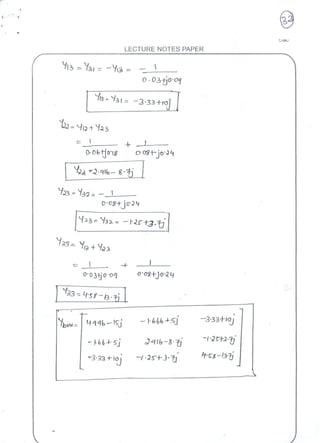 32
LECTURE NOTES PAPER
Y13 = Y31 = -Y13 = - 1
0.03+j0.09
Y13 = Y31 = -3.33+10j
Y22 = Y12 + Y23
= 1 + 1
0.06+j0.18 0.08+j0.24
Y22 = 2.916 - 8.7j
Y23 = Y32 = - 1
0.08+j0.24
Y23 = Y32 = -1.25+3.7j
Y33 = Y13 + Y23
= 1 + 1
0.03+j0.09 0.08+j0.24
Y33 = 4.58-13.7j
Ybus = 4.996-15j -1.666+5j -3.33+10j
-1.66+5j 2.916-8.7j -1.25+3.7j
-3.33+10j -1.25+3.7j 4.58-13.7j